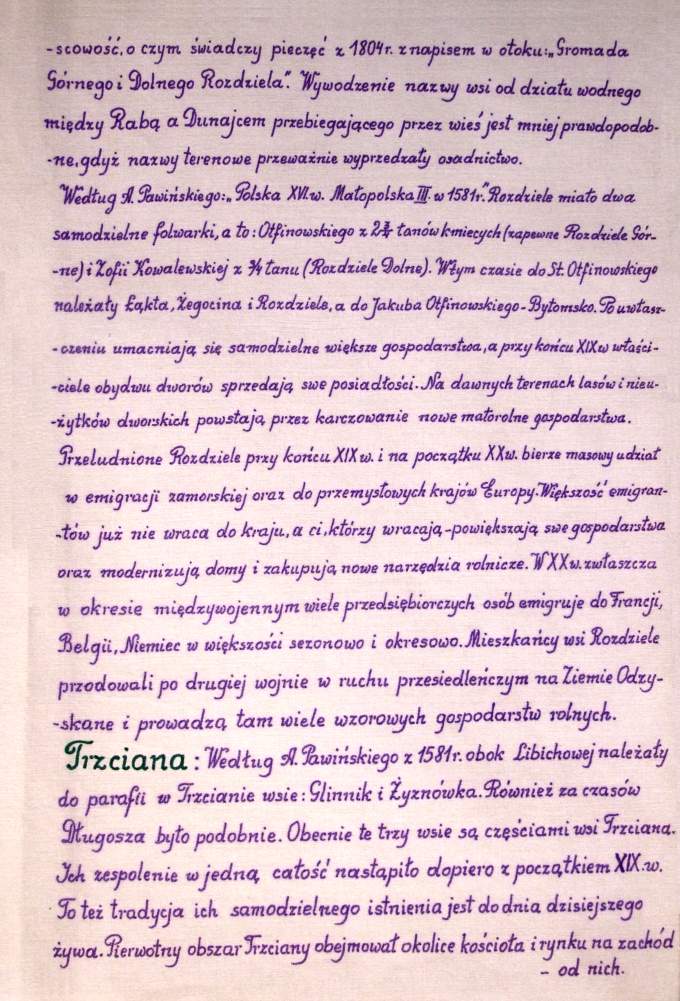 -scowość, o czym świadczy pieczęć z 1804r. z napisem w otoku: „Gromada
Górnego i Dolnego Rozdziela". Wywodzenie nazwy wsi od działu wodnego
między Rabą a Dunajcem przebiegającego przez wieś jest mniej prawdopodob-
-ne, gdyż nazwy terenowe przeważnie wyprzedzały osadnictwo.
Według A. Pawińskiego: „Polska XVI.w. Małopolska III. w 1581r." Rozdziele miało dwa
samodzielne folwarki, a to: Otfinowskiego z 2¾ łanów kmiecych (zapewne Rozdziele Gór-
-ne) i Zofii Kowalewskiej z ¾ łanu (Rozdziele Dolne). W tym czasie do St. Otfinowskiego
należały Łąkta, Żegocina i Rozdziele, a do Jakuba Otfinowskiego - Bytomsko. Po uwłasz-
-czeniu umacniają się samodzielne większe gospodarstwa, a przy końcu XIX w właści-
-ciele obydwu dworów sprzedają swe posiadłości. Na dawnych terenach lasów i nieu-
-żytków dworskich powstają przez karczowanie nowe małorolne gospodarstwa.
Przeludnione Rozdziele przy końcu XIX w. i na początku XX w. bierze masowy udział
w emigracji zamorskiej oraz do przemysłowych krajów Europy. Większość emigran-
-tów już nie wraca do kraju, a ci, którzy wracają - powiększają swe gospodarstwa
oraz modernizują domy i zakupują nowe narzędzia rolnicze. W XX w. zwłaszcza
w okresie międzywojennym wiele przedsiębiorczych osób emigruje do Francji,
Belgii, Niemiec w większości sezonowo i okresowo. Mieszkańcy wsi Rozdziele
przodowali po drugiej wojnie w ruchu przesiedleńczym na Ziemie Odzy-
-skane i prowadzą tam wiele wzorowych gospodarstw rolnych.
Trzciana: Według A. Pawińskiego z 1581r. obok Libichowej należały
do parafii w Trzcianie wsie: Glinnik i Żyznówka. Również za czasów
Długosza było podobnie. Obecnie te trzy wsie są częściami wsi Trzciana.
Ich zespolenie w jedną całość nastąpiło dopiero z początkiem XIX.w.
To też tradycja ich samodzielnego istnienia jest do dnia dzisiejszego
żywa. Pierwotny obszar Trzciany obejmował okolice kościoła i rynku na zachód
- od nich.